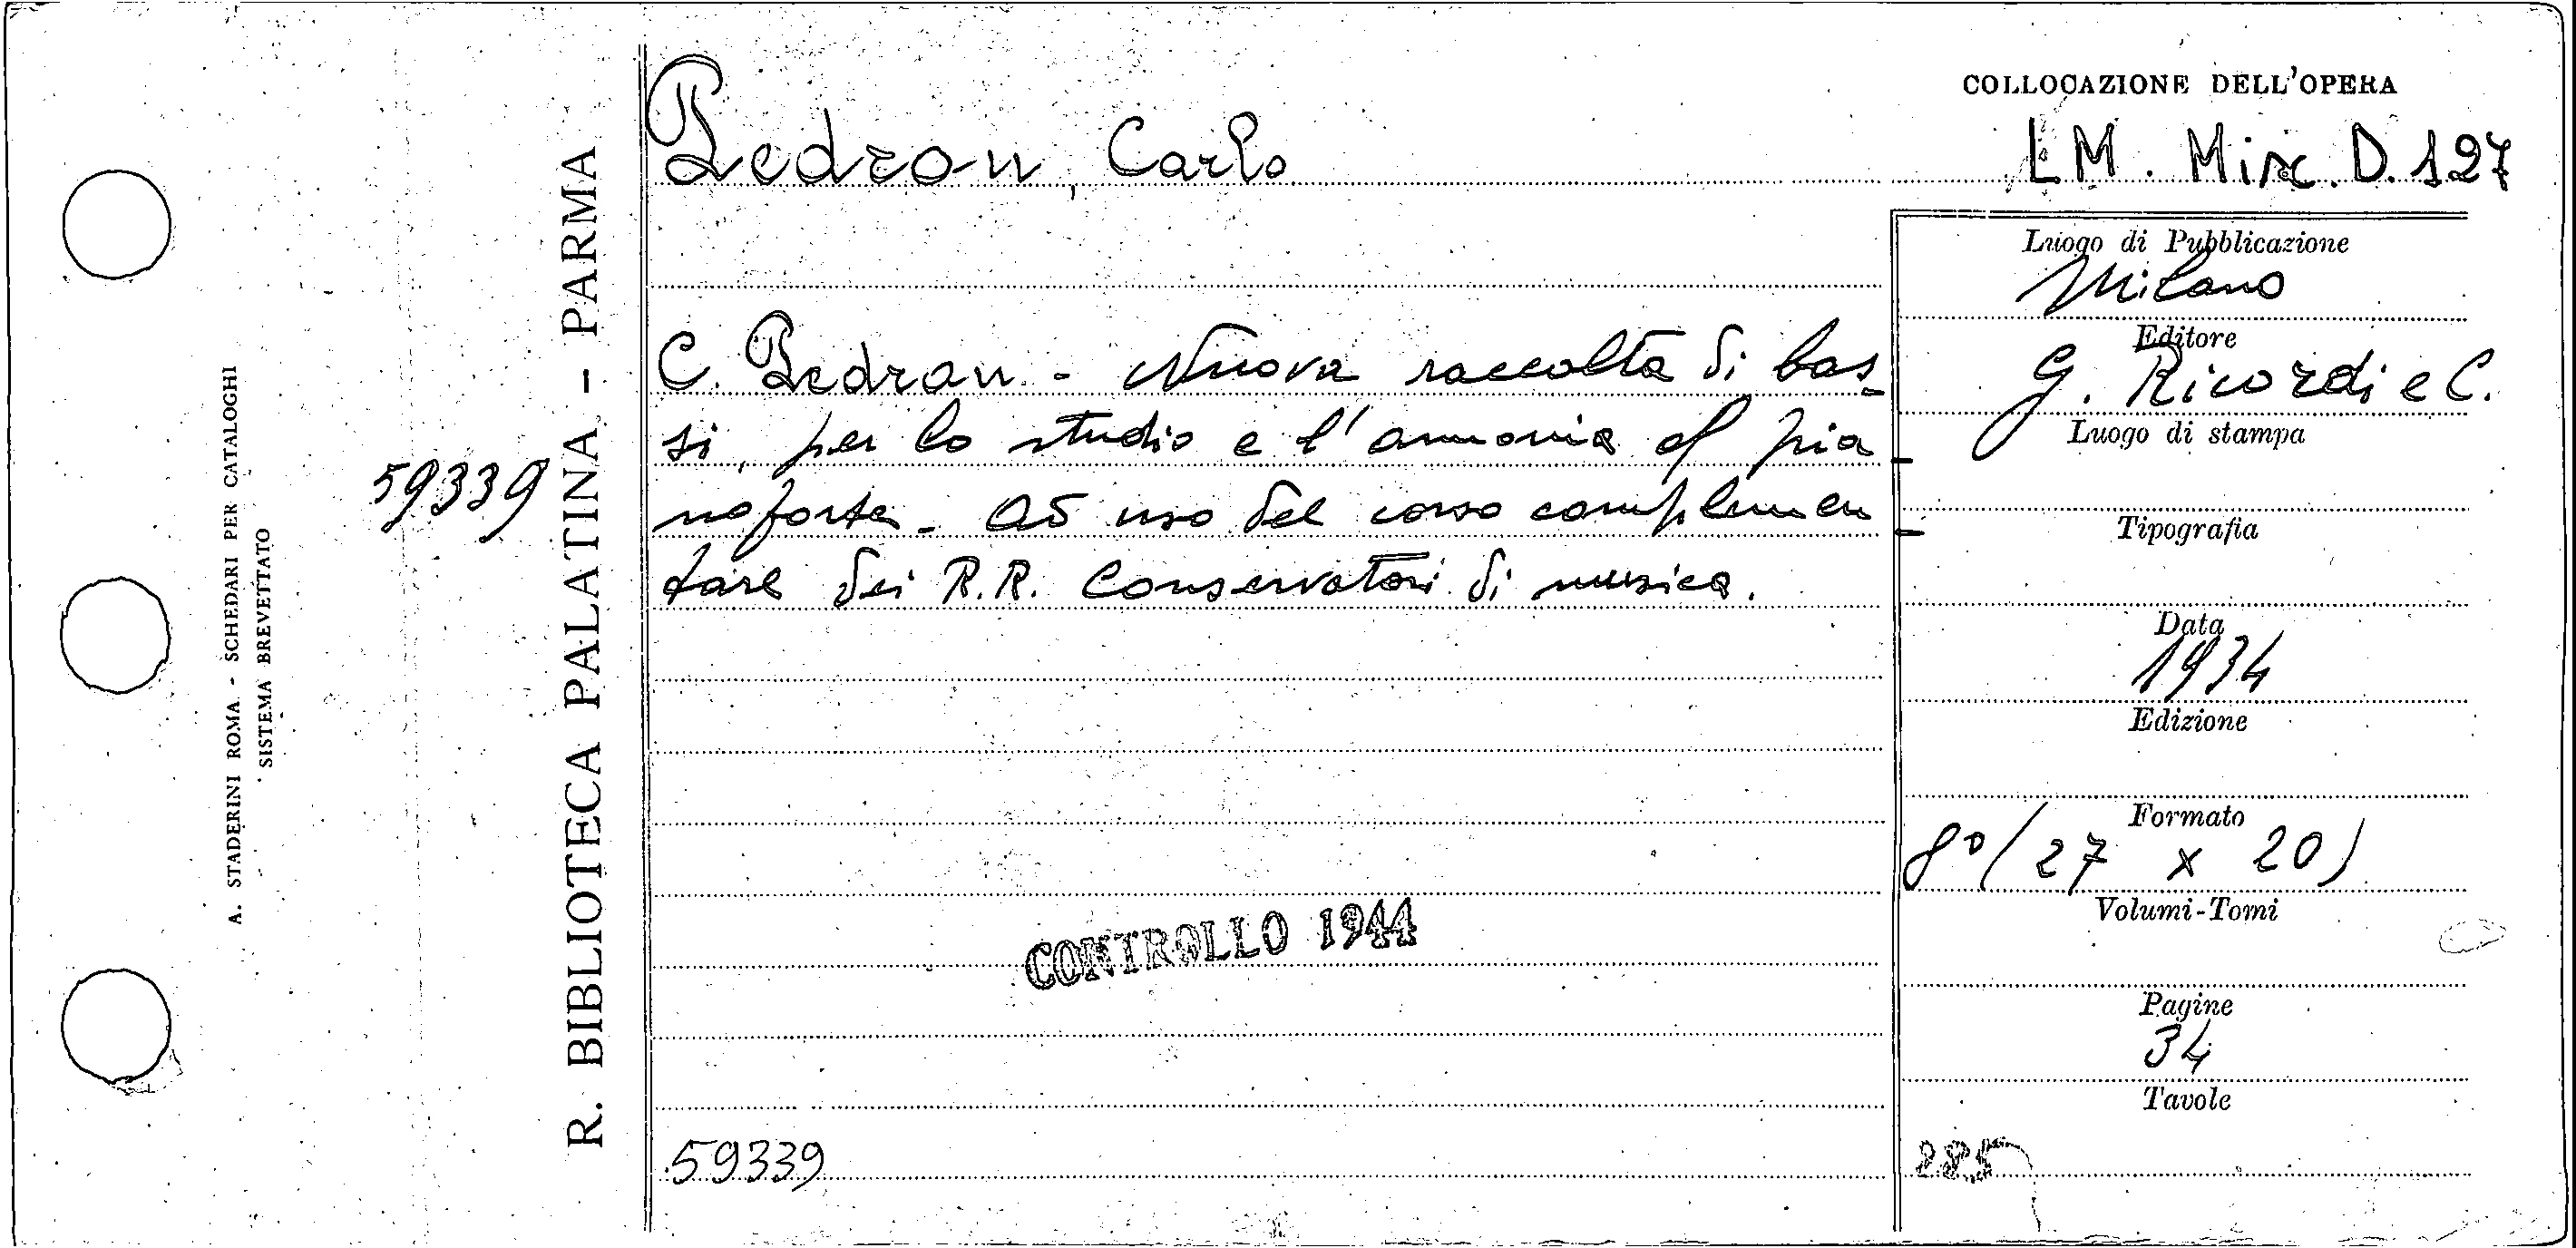 COLLOCAZIONE DELL'OPERA
Pedron, Carlo
LM. Misc. D. 127
C. Pedron - Nuova raccolta di bas-
si, per lo studio e l'armonia al pia-
noforte. Ad uso del corso complemen-
tare dei R.R. Conservatori di musica.
CONTROLLO 1944
59339
Luogo di Pubblicazione
Milano
Editore
G. Ricordi e C.
Luogo di stampa
Tipografia
Data
1934
Edizione
Formato
8° (27 x 20)
Volumi-Tomi
Pagine
34
Tavole
285
R. BIBLIOTECA PALATINA - PARMA
59339
A. STADERINI ROMA - SCHEDARI PER CATALOGHI
SISTEMA BREVETTATO